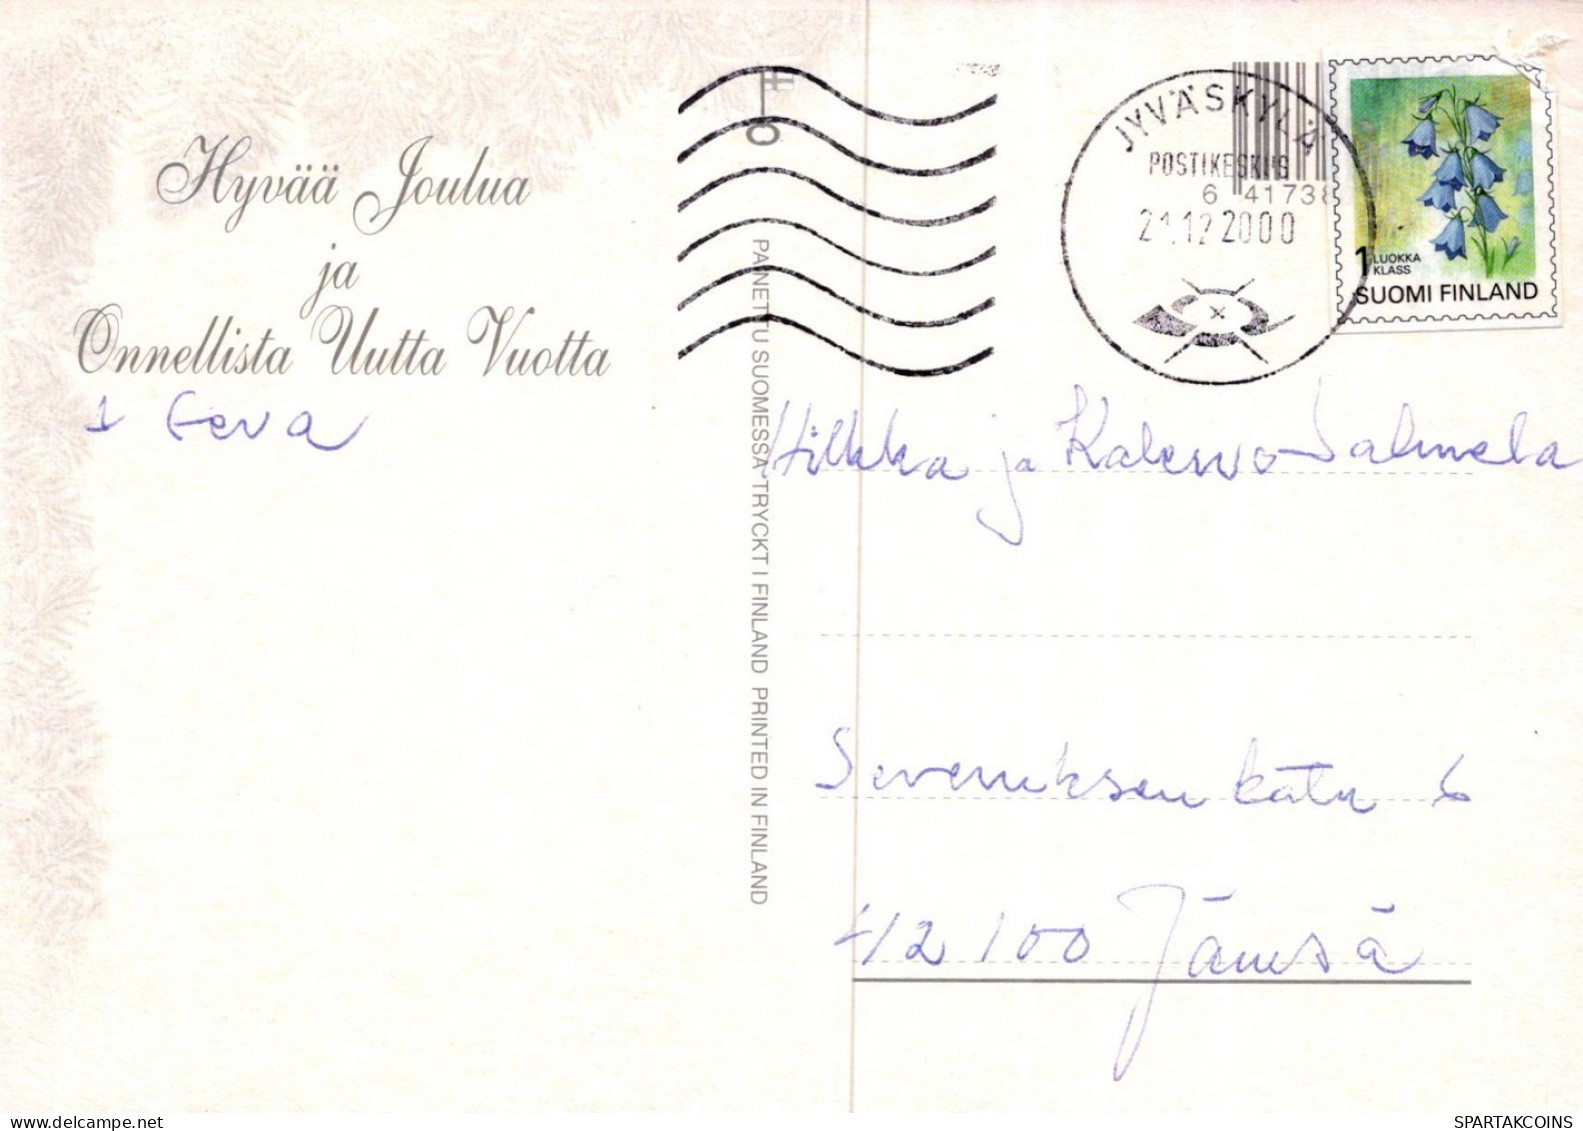 Hyvää Joulua
ja
Onnellista Uutta Vuotta
Eeva
PAINETTU SUOMESSA TRYCKT I FINLAND PRINTED IN FINLAND
JYVÄSKYLÄ
POSTIKESKUS
6 41738
21.12.2000
1 LUOKKA
KLASS
SUOMI FINLAND
Hilkka ja Kalervo Salmela
katu 6
42100 Jämsä
SPARTAKCOINS